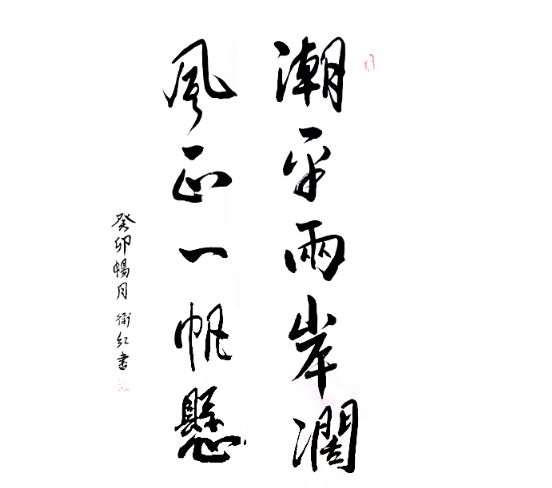 潮平兩岸濶
風正一帆懸
癸卯暢月衛紅書